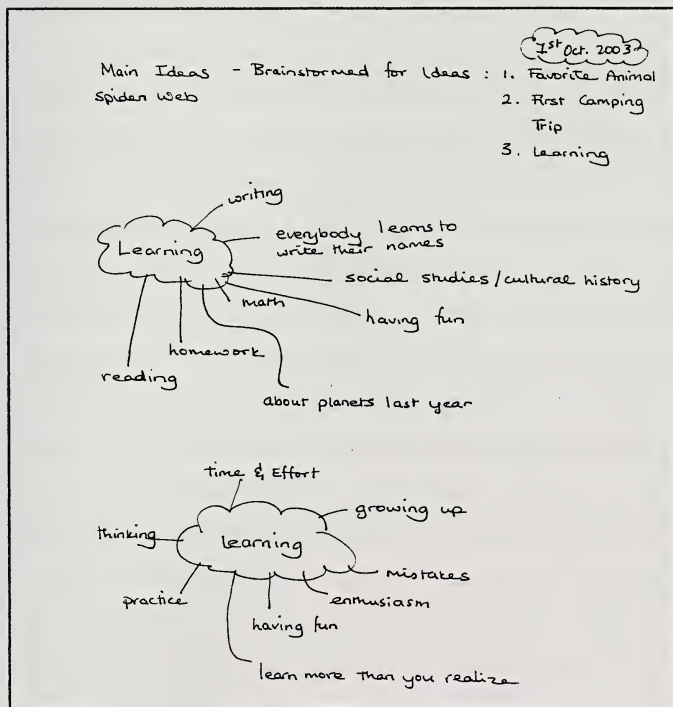 1st Oct. 2003
Main Ideas - Brainstormed for Ideas : 1. Favorite Animal
Spider Web
2. First Camping
Trip
3. Learning
writing
Learning
everybody learns to
write their names
social studies / cultural history
math
having fun
homework
reading
about planets last year
Time & Effort
growing up
thinking
Learning
mistakes
practice
enthusiasm
having fun
learn more than you realize